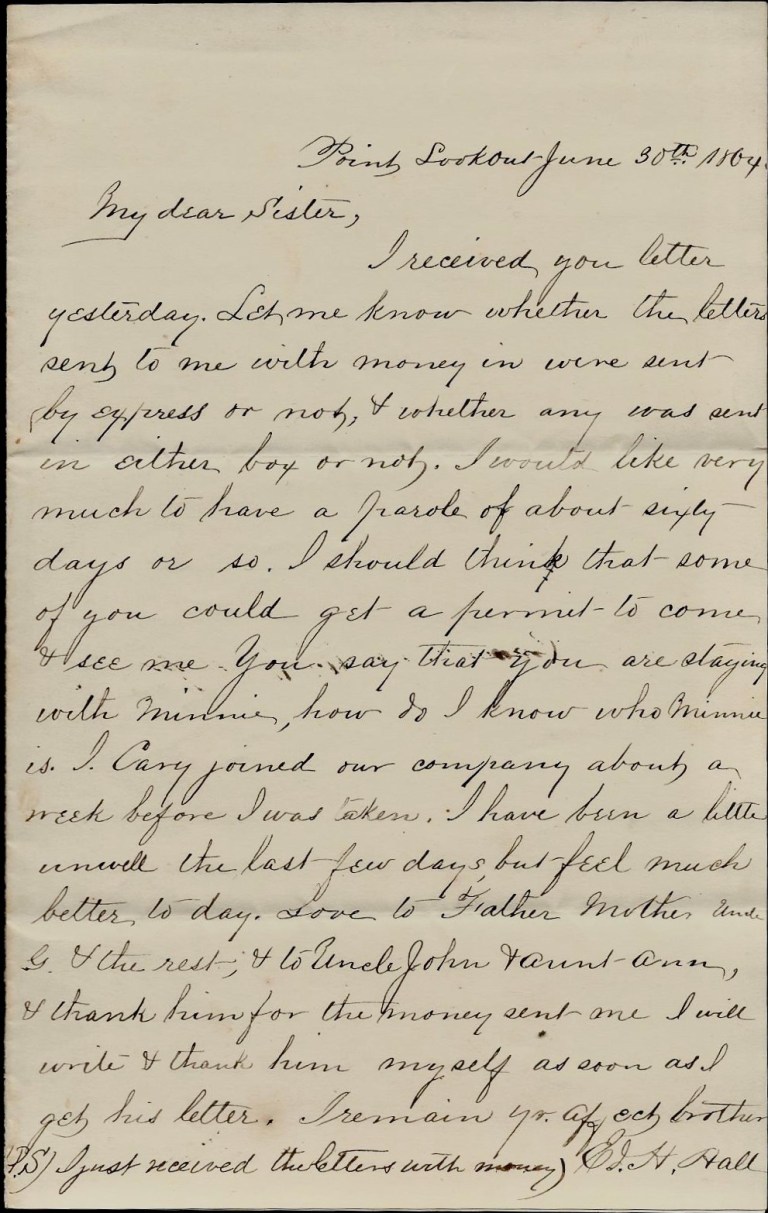 Point Lookout June 30th 1864.
My dear Sister,
I received you letter
yesterday. Let me know whether the letters
sent to me with money in were sent
by express or not, & whether any was sent
in either box or not. I would like very
much to have a parole of about sixty
days or so. I should think that some
of you could get a permit to come
& see me You say that you are staying
with Minnie, how do I know who Minnie
is. I. Cary joined our company about a
week before I was taken. I have been a little
unwell the last few days, but feel much
better to day. Love to Father Mother Uncle
G. & the rest, & to Uncle John & aunt Ann,
& thank him for the money sent me I will
write & thank him myself as soon as I
get his letter. I remain yr. affect brother
(P.S) I just received the letters with money) Ed. H. Hall